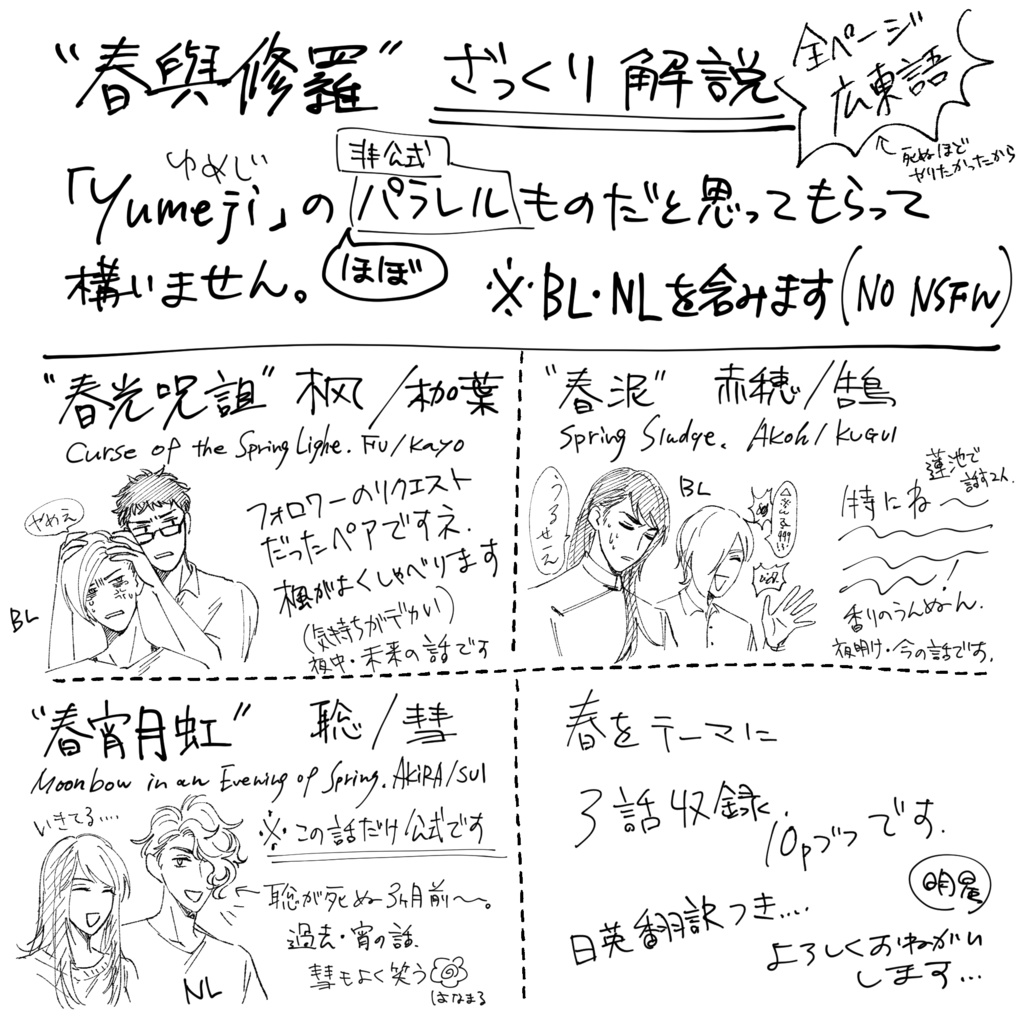 "春與修羅" ざっくり解説
全ページ
広東語
死ぬほど
ヤりたかったから
ゆめじ
非公式
「Yumeji」のパラレルものだと思ってもらって
構いません。
ほぼ
※BL・NLを含みます(NO NSFW)
"春光呪詛" 枫/枷葉
Curse of the Spring Lighe. FU/KAYO
やめえ
BL
フォロワーのリクエスト
だったペアですネ.
楓がよくしゃべります
(気持ちがデカい)
夜中・未来の話です
"春泥" 赤穂/鵠
Spring Sludge. AKOH/KUGUI
うるせえ
BL
蓮池で
話す2人
特にね〜
香りのうんぬん.
夜明け・今の話です.
"春宵月虹" 聡/彗
Moonbow in an Evening of Spring. AKIRA/SUI
いきてる....
NL
※この話だけ公式です
←聡が死ぬ3ヶ月前〜。
過去・宵の話.
彗もよく笑う
はなまる
春をテーマに
3話収録.
10pづつです.
日英翻訳つき....
明星
よろしくおねがい
します...